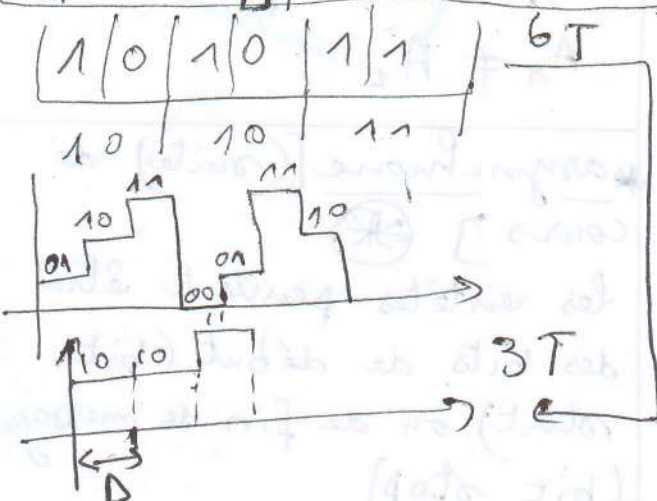 1 0 1 0 1 1 6T
10 10 11
01 10 11 00 01 11 10
10 10 11 3T
D